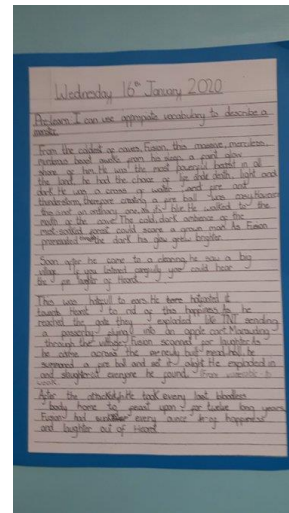 Wednesday 16th January 2020
I can use appropriate vocabulary to describe a
From the coldest of caves, Fusion, this massive, merciless,
murderous beast awoke from his sleep, a faint glow
him. He was the most powerful beast in all
the land, he had the choice of life and death, light and
dark. He was a cross of water and fire and
thunderstorm, therefore creating a fire ball.
this was no ordinary He walked to the
mouth of the cave. The cold, dark ambience of the
forest could scare a grown man. As Fusion
the dark his glow grew brighter.
Soon after he came to a clearing, he saw a big
village. If you listened carefully you could hear
the laughter of Heorot.
This was hateful to ears. He
towards Heorot to rid of this happiness. he
reached the gate they exploded like TNT, sending
a flying into an apple cart. Marauding
through the village, Fusion scanned for laughter. As
he came across the newly built mead-hall, he
summoned a fire ball and set it alight. He exploded in
and slaughtered everyone he found.
After the attack, he took every last bloodless
body home to feast upon. For twelve long years,
Fusion had every ounce of happiness
and laughter out of Heorot.